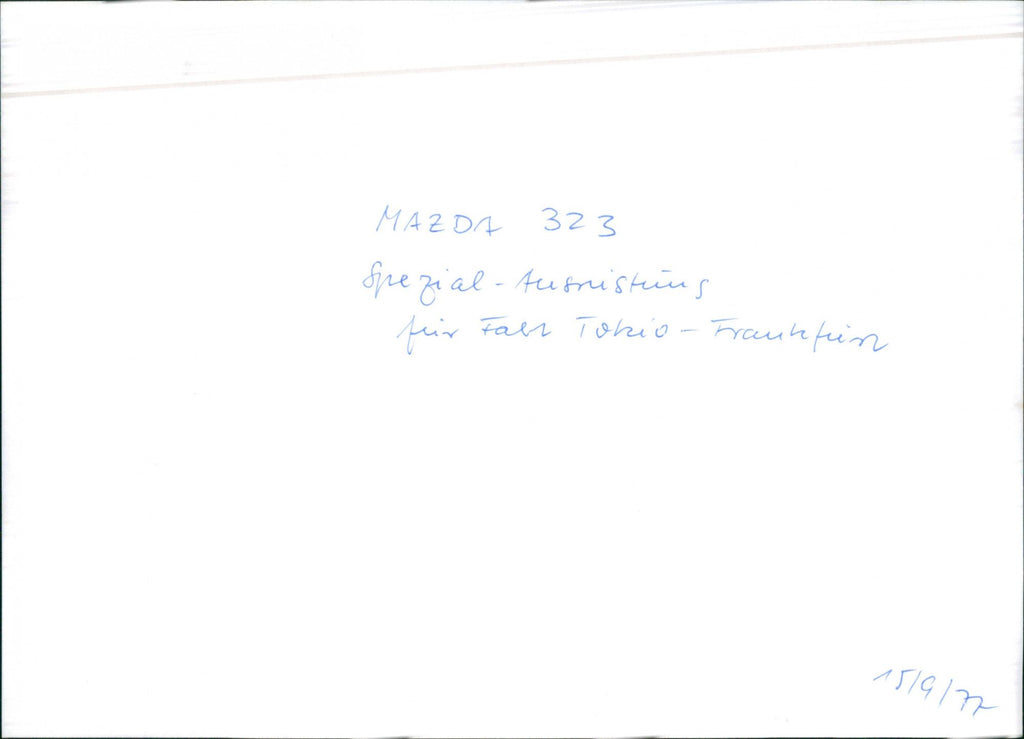 MAZDA 323
Spezial-Ausrüstung
für Fahrt Tokio - Frankfurt
15/9/77